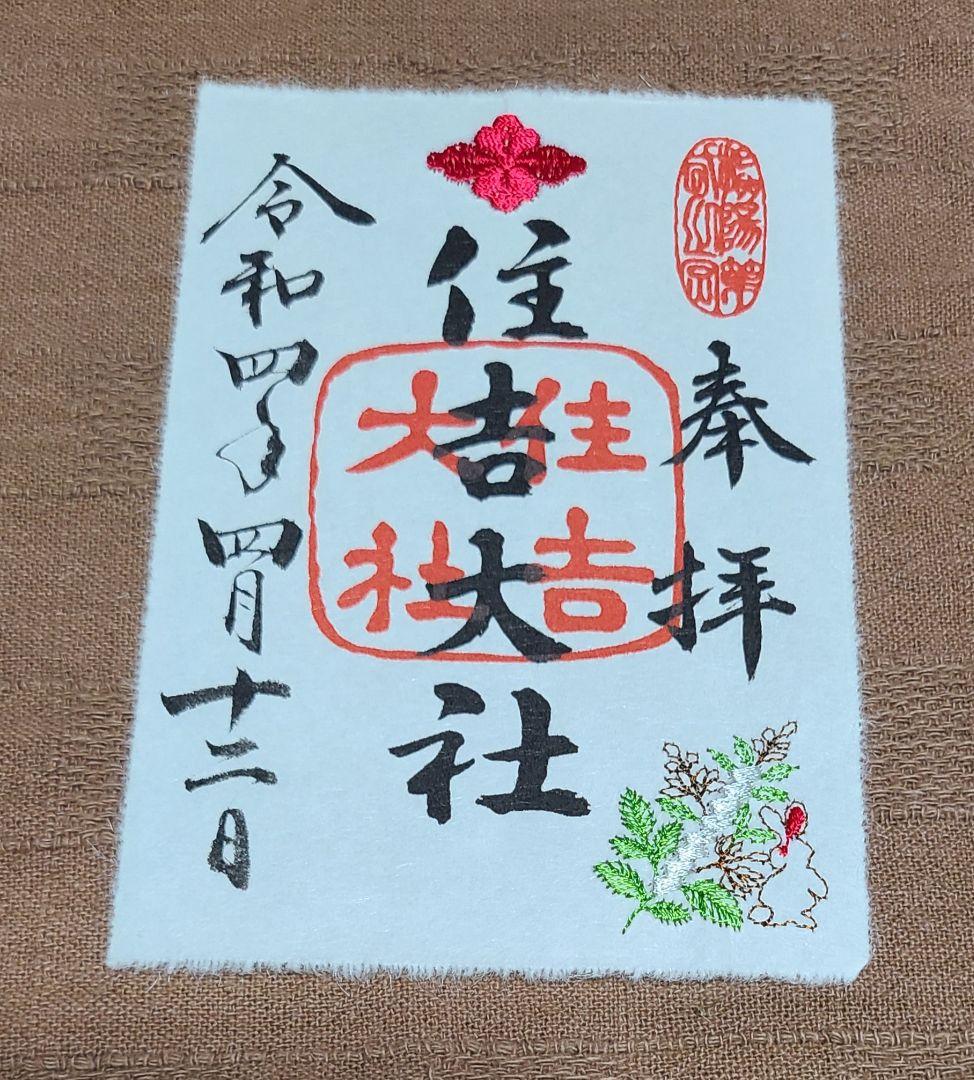 奉拝
住吉大社
住吉
大社
令和四年四月十二日